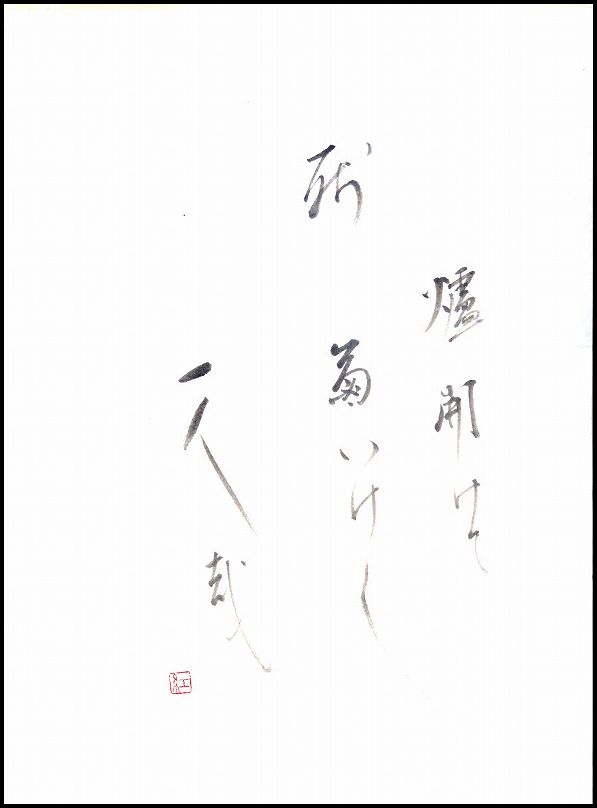 爐開けて
残菊いけし
一人哉
紅